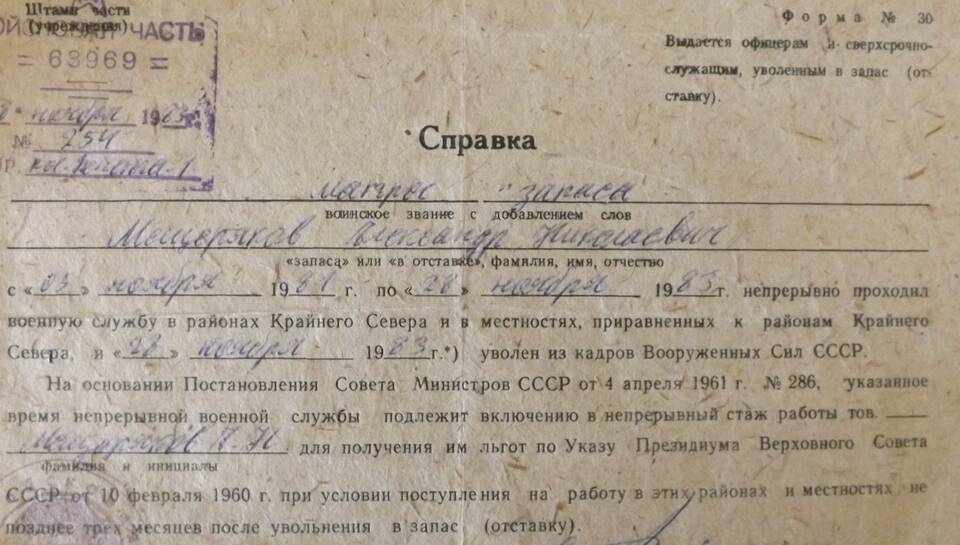 Штамп части
(учреждения)
ЧАСТЬ
= 63969 =
ноября 1983
№ 254
Форма № 30
Выдается офицерам и сверхсрочно-
служащим, уволенным в запас (от-
ставку).
Справка
матрос запаса
воинское звание с добавлением слов
Мещеряков Александр Николаевич
«запаса» или «в отставке», фамилия, имя, отчество
с «03» ноября 1981 г. по «28» ноября 1983 г. непрерывно проходил
военную службу в районах Крайнего Севера и в местностях, приравненных к районам Крайнего
Севера, и «28» ноября 1983 г.*) уволен из кадров Вооруженных Сил СССР.
На основании Постановления Совета Министров СССР от 4 апреля 1961 г. № 286, указанное
время непрерывной военной службы подлежит включению в непрерывный стаж работы тов.
Мещеряков А.Н для получения им льгот по Указу Президиума Верховного Совета
фамилия и инициалы
СССР от 10 февраля 1960 г. при условии поступления на работу в этих районах и местностях не
позднее трех месяцев после увольнения в запас (отставку).